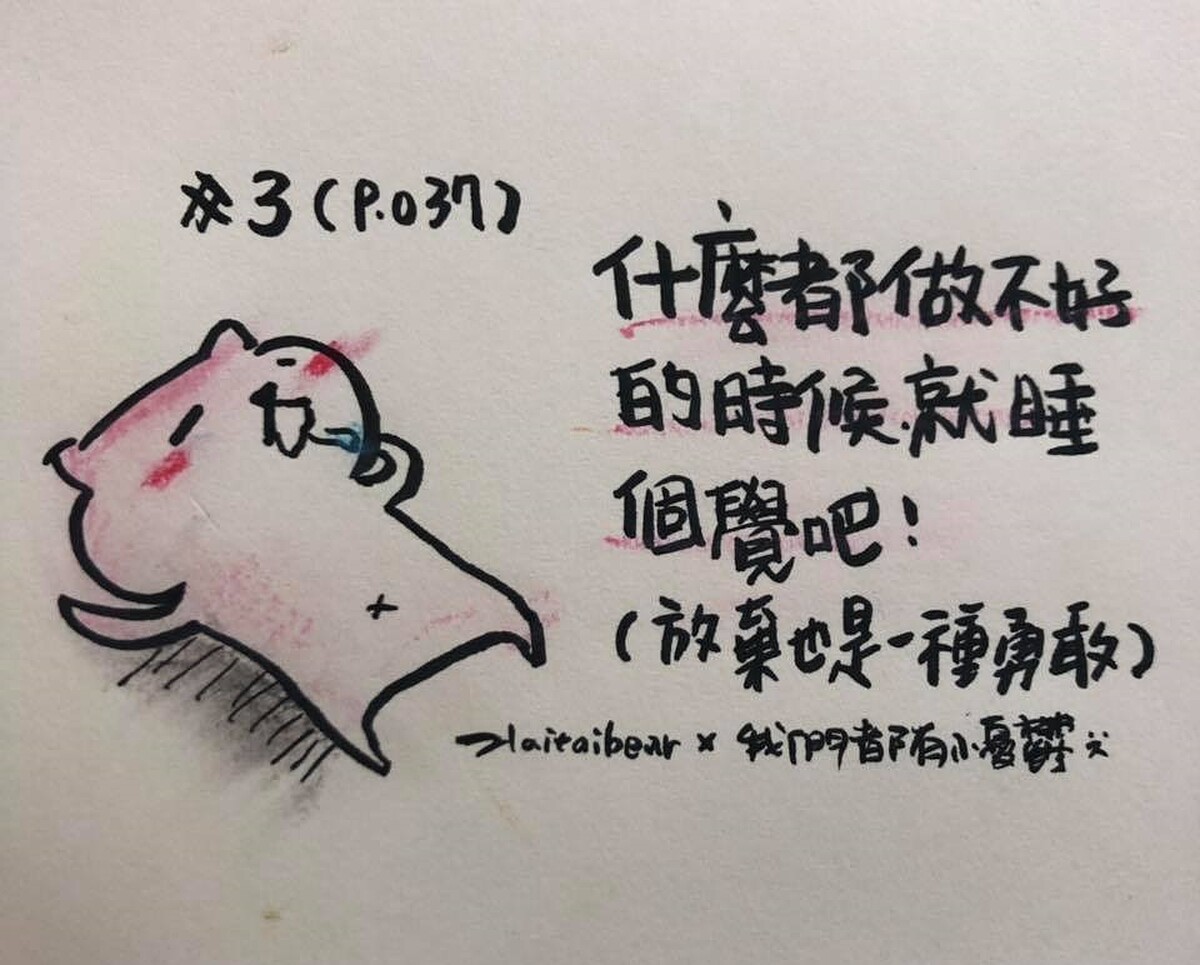 #3(P.037)
什麼都做不好
的時候.就睡
個覺吧!
(放棄也是一種勇敢)
laitaibear × 我們都有小憂鬱